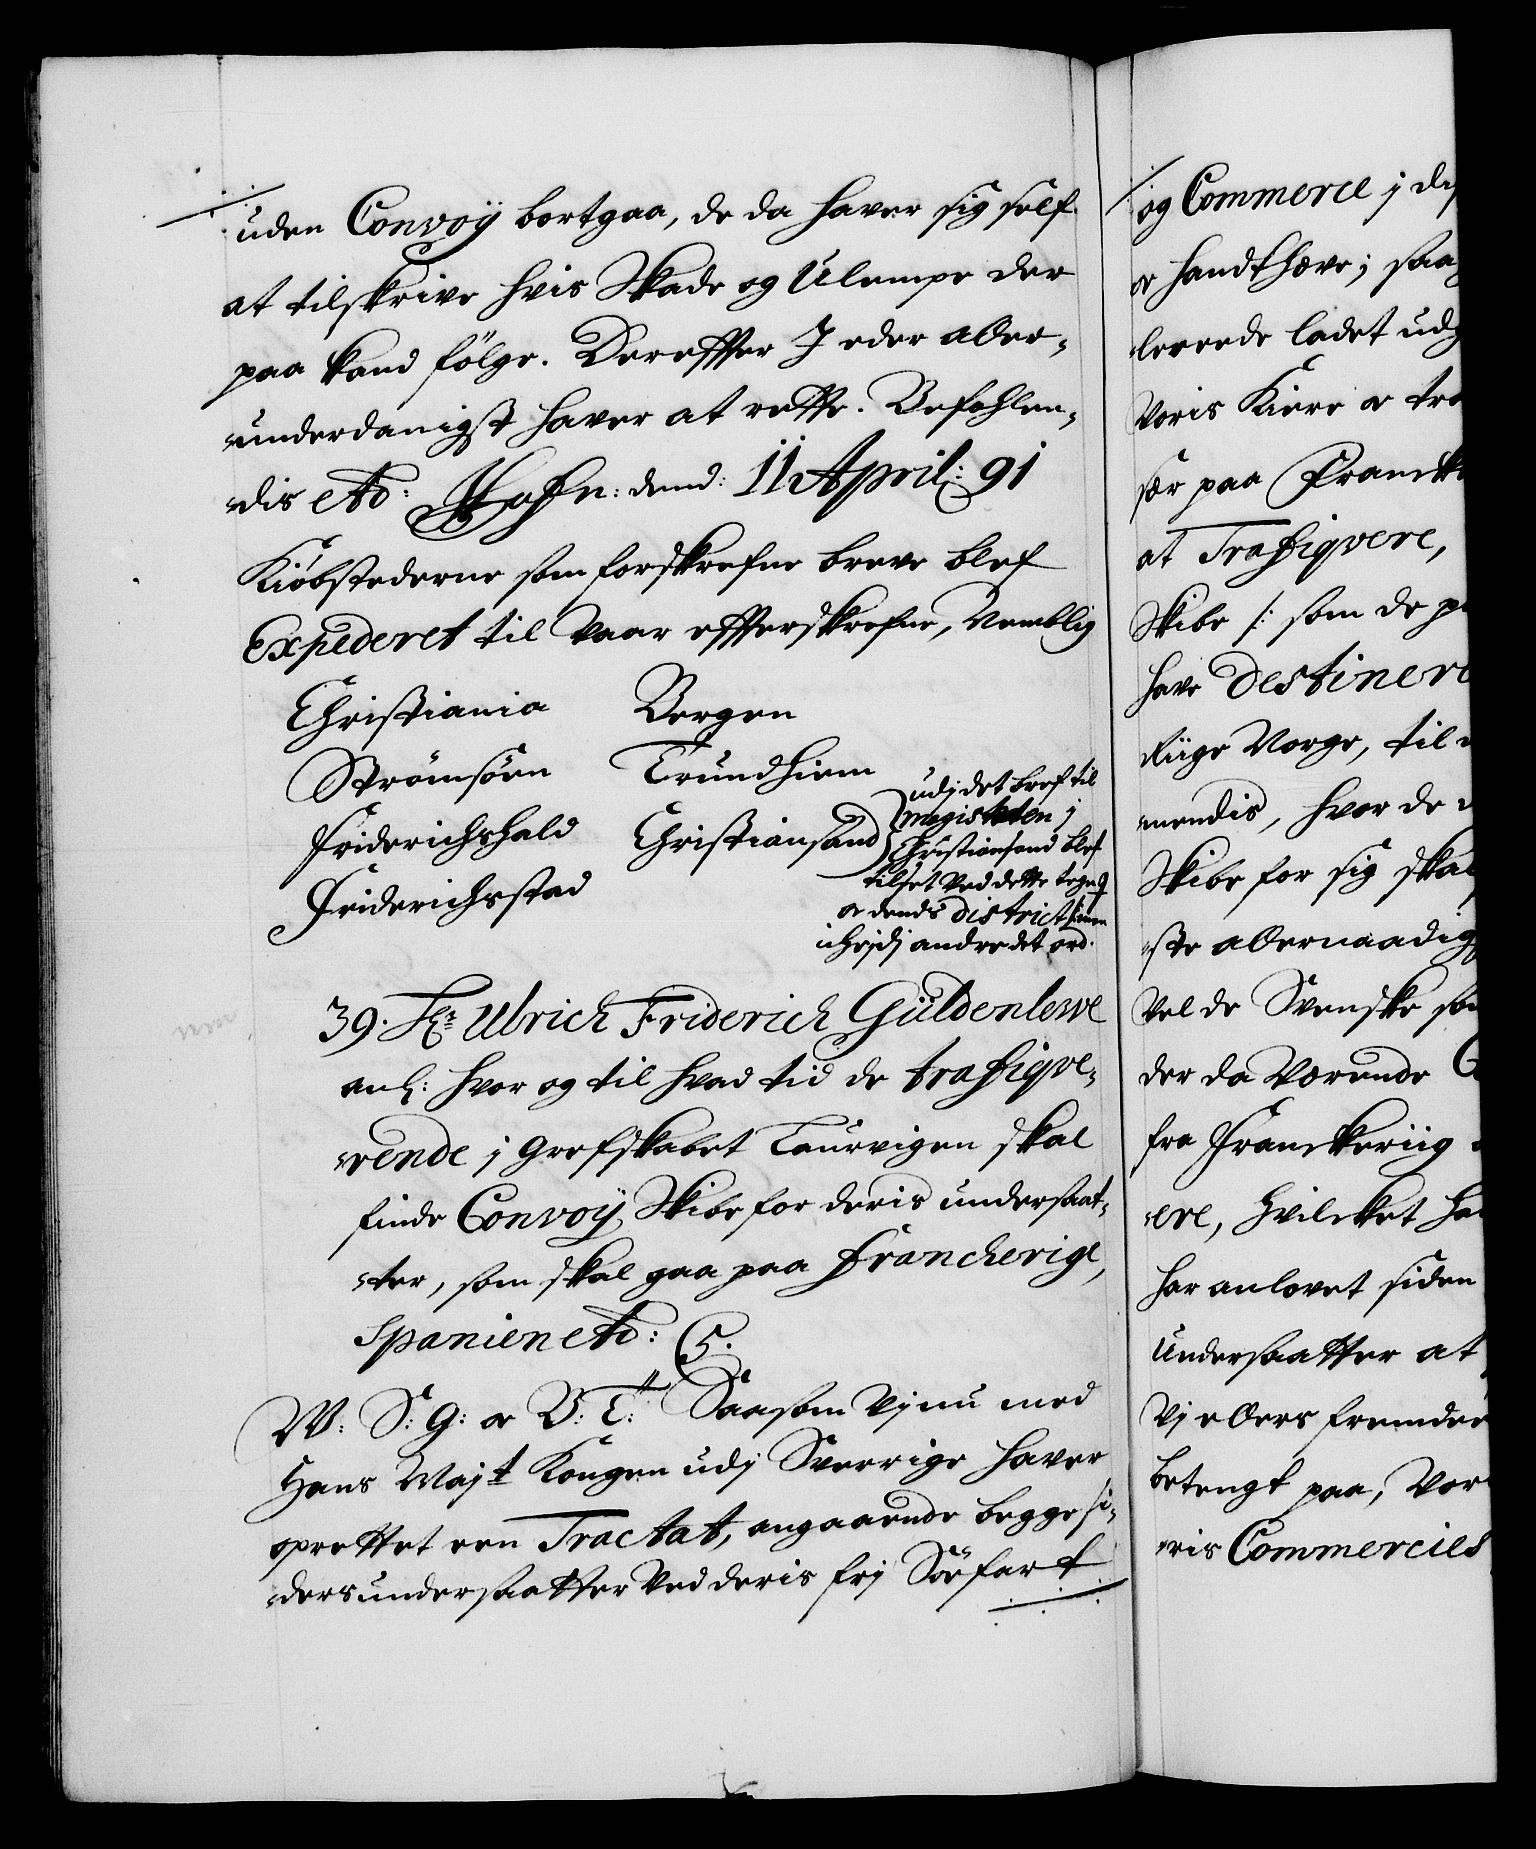 uden Convoÿ bortgaa, de da hafver sig self
at tilskrive hvis Skade og Ulempe der
paa kand fölge. Dereffter I eder aller-
underdanigst hafver at rette. Befahlen-
dis etc: Hafn: dend: 11 April: 91
Kiøbstederne som forskrefne breve blef
Expederet til vaar effterskrefne, Nemblig
Christiania Bergen
Strömsöen Trundhiem
Friderichshald Christiansand
Friderichsstad
udj det bref til
magistraten j
Christiansand blef
tilset ved dette tegn
oc dends district
ich udj andre det ord.
39. Hr Ulrich Friderich Güldenlewe
anl: hvor og til hvad tid de trafiqve-
rende j Grefskabet Laurvigen skal
finde Convoÿ Skibe for deris undersaat-
ter, som skal gaa paa Francherige,
Spanien etc: C5.
W: S: G: oc B: T: Saasom Vj nu med
Hans Majt Kongen udj Sverrige hafver
oprettet een Tractat, angaaende begge si-
ders undersaatter ved deris frj Söefart
og Commerce j
oc handthæve; saa
lerede ladet udg
Voris Kiere oc tro
sær paa Franck
at Trafiqvere,
Skibe /: som de p
have destinere
Riige Norge, til
nendis, hvor de
Skibe for sig skal
ste allernaadig
Vel de Svenske som
der da Værende C
fra Franckeriig
ere, hvilcket ha
har anlovet siden
Undersaatter at
Vj ellers fremdee
betengt paa, Vor
ris Commercies